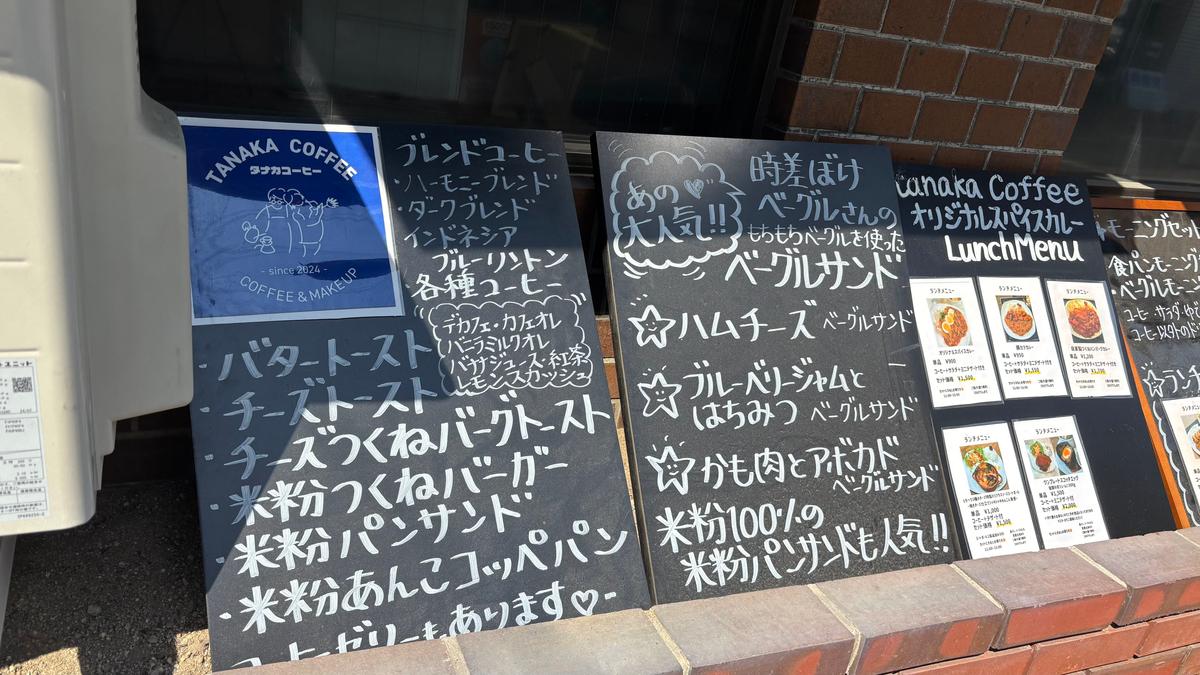 TANAKA COFFEE
タナカコーヒー
- since 2024 -
COFFEE & MAKEUP
ブレンドコーヒー
・ハーモニーブレンド
・ダークブレンド
インドネシア
ブルーリントン
各種コーヒー
デカフェ・カフェオレ
バニラミルクオレ
バサジュース・紅茶
レモンスカッシュ
・バタートースト
・チーズトースト
・チーズつくねバーグトースト
・米粉つくねバーガー
・米粉パンサンド
・米粉あんこコッペパン
コーヒーゼリーもあります♡-
あの♡
大人気!!
時差ぼけ
ベーグルさんの
もちもちベーグルを使った
ベーグルサンド
☆ハムチーズ ベーグルサンド
☆ブルーベリージャムと
はちみつ ベーグルサンド
☆かも肉とアボカド
ベーグルサンド
米粉100%の
米粉パンサンドも人気!!
tanaka Coffee
オリジナルスパイスカレー
LunchMenu
ランチメニュー
オリジナルスパイスカレー
単品 ¥950
ランチメニュー
単品 ¥950
ランチメニュー
ランチメニュー
単品 ¥1,000
ランチメニュー
単品 ¥1,500
モーニングセット
食パンモーニング